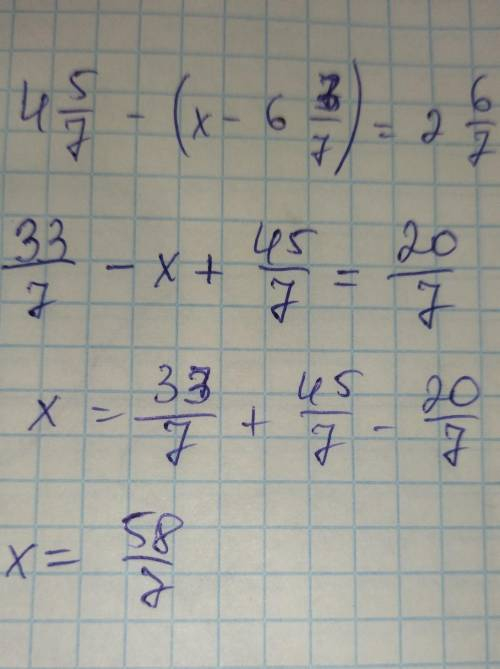 4 5/7 - (x - 6 3/7) = 2 6/7
33/7 - x + 45/7 = 20/7
x = 33/7 + 45/7 - 20/7
x = 58/7